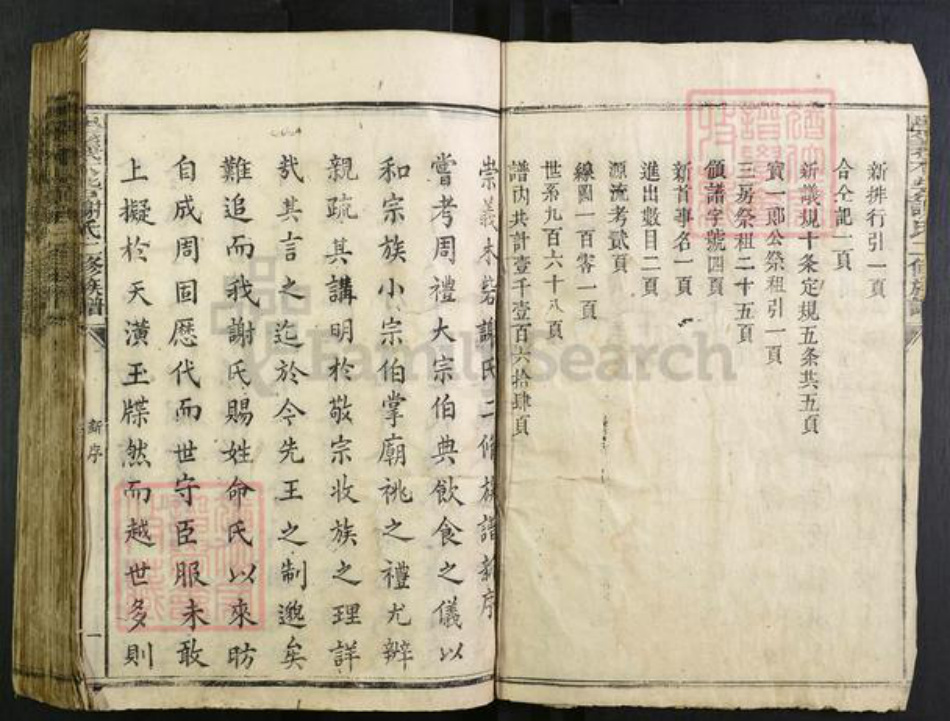 新排行引一頁
合仝記二頁
新議規十条定規五条共五頁
寳一郎公祭租引一頁
三房祭租二十五頁
領譜字號四頁
新首事名一頁
進出數目二頁
源流考貳頁
線圖一百零一頁
世系九百六十八頁
譜内共計壹千壹百六拾肆頁
崇義木砦謝氏二修族譜新序
嘗考周禮大宗伯典飲食之儀以
和宗族小宗伯掌廟祧之禮尤辨
親疏其講明於敬宗收族之理詳
哉其言之迄於今先王之制邈矣
難追而我謝氏賜姓命氏以來昉
自成周固歷代而世守臣服未敢
上擬於天潢玉牒然而越世多則
新序
一
謝氏二修族譜
FamilySearch